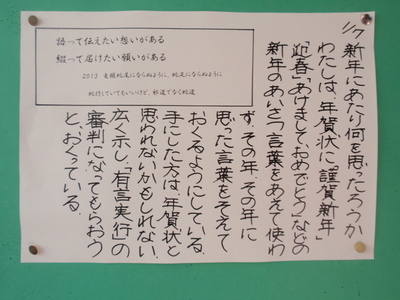 語って伝えたい想いがある
綴って届けたい願いがある
2013 竜頭蛇尾にならぬように、蛇足にならぬように
蛇行していてもいいけど、邪道でなく蛇道
1/7
新年にあたり何を思ったろうか
わたしは、年賀状に「謹賀新年」
「迎春」「あけましておめでとう」などの
新年のあいさつ言葉をあえて使わ
ず、その年、その年に
思った言葉をそえて
おくるようにしている。
手にした方は、年賀状と
思われないかもしれない。
広く示し、「有言実行」の
審判になってもらおう
と、おくっている。